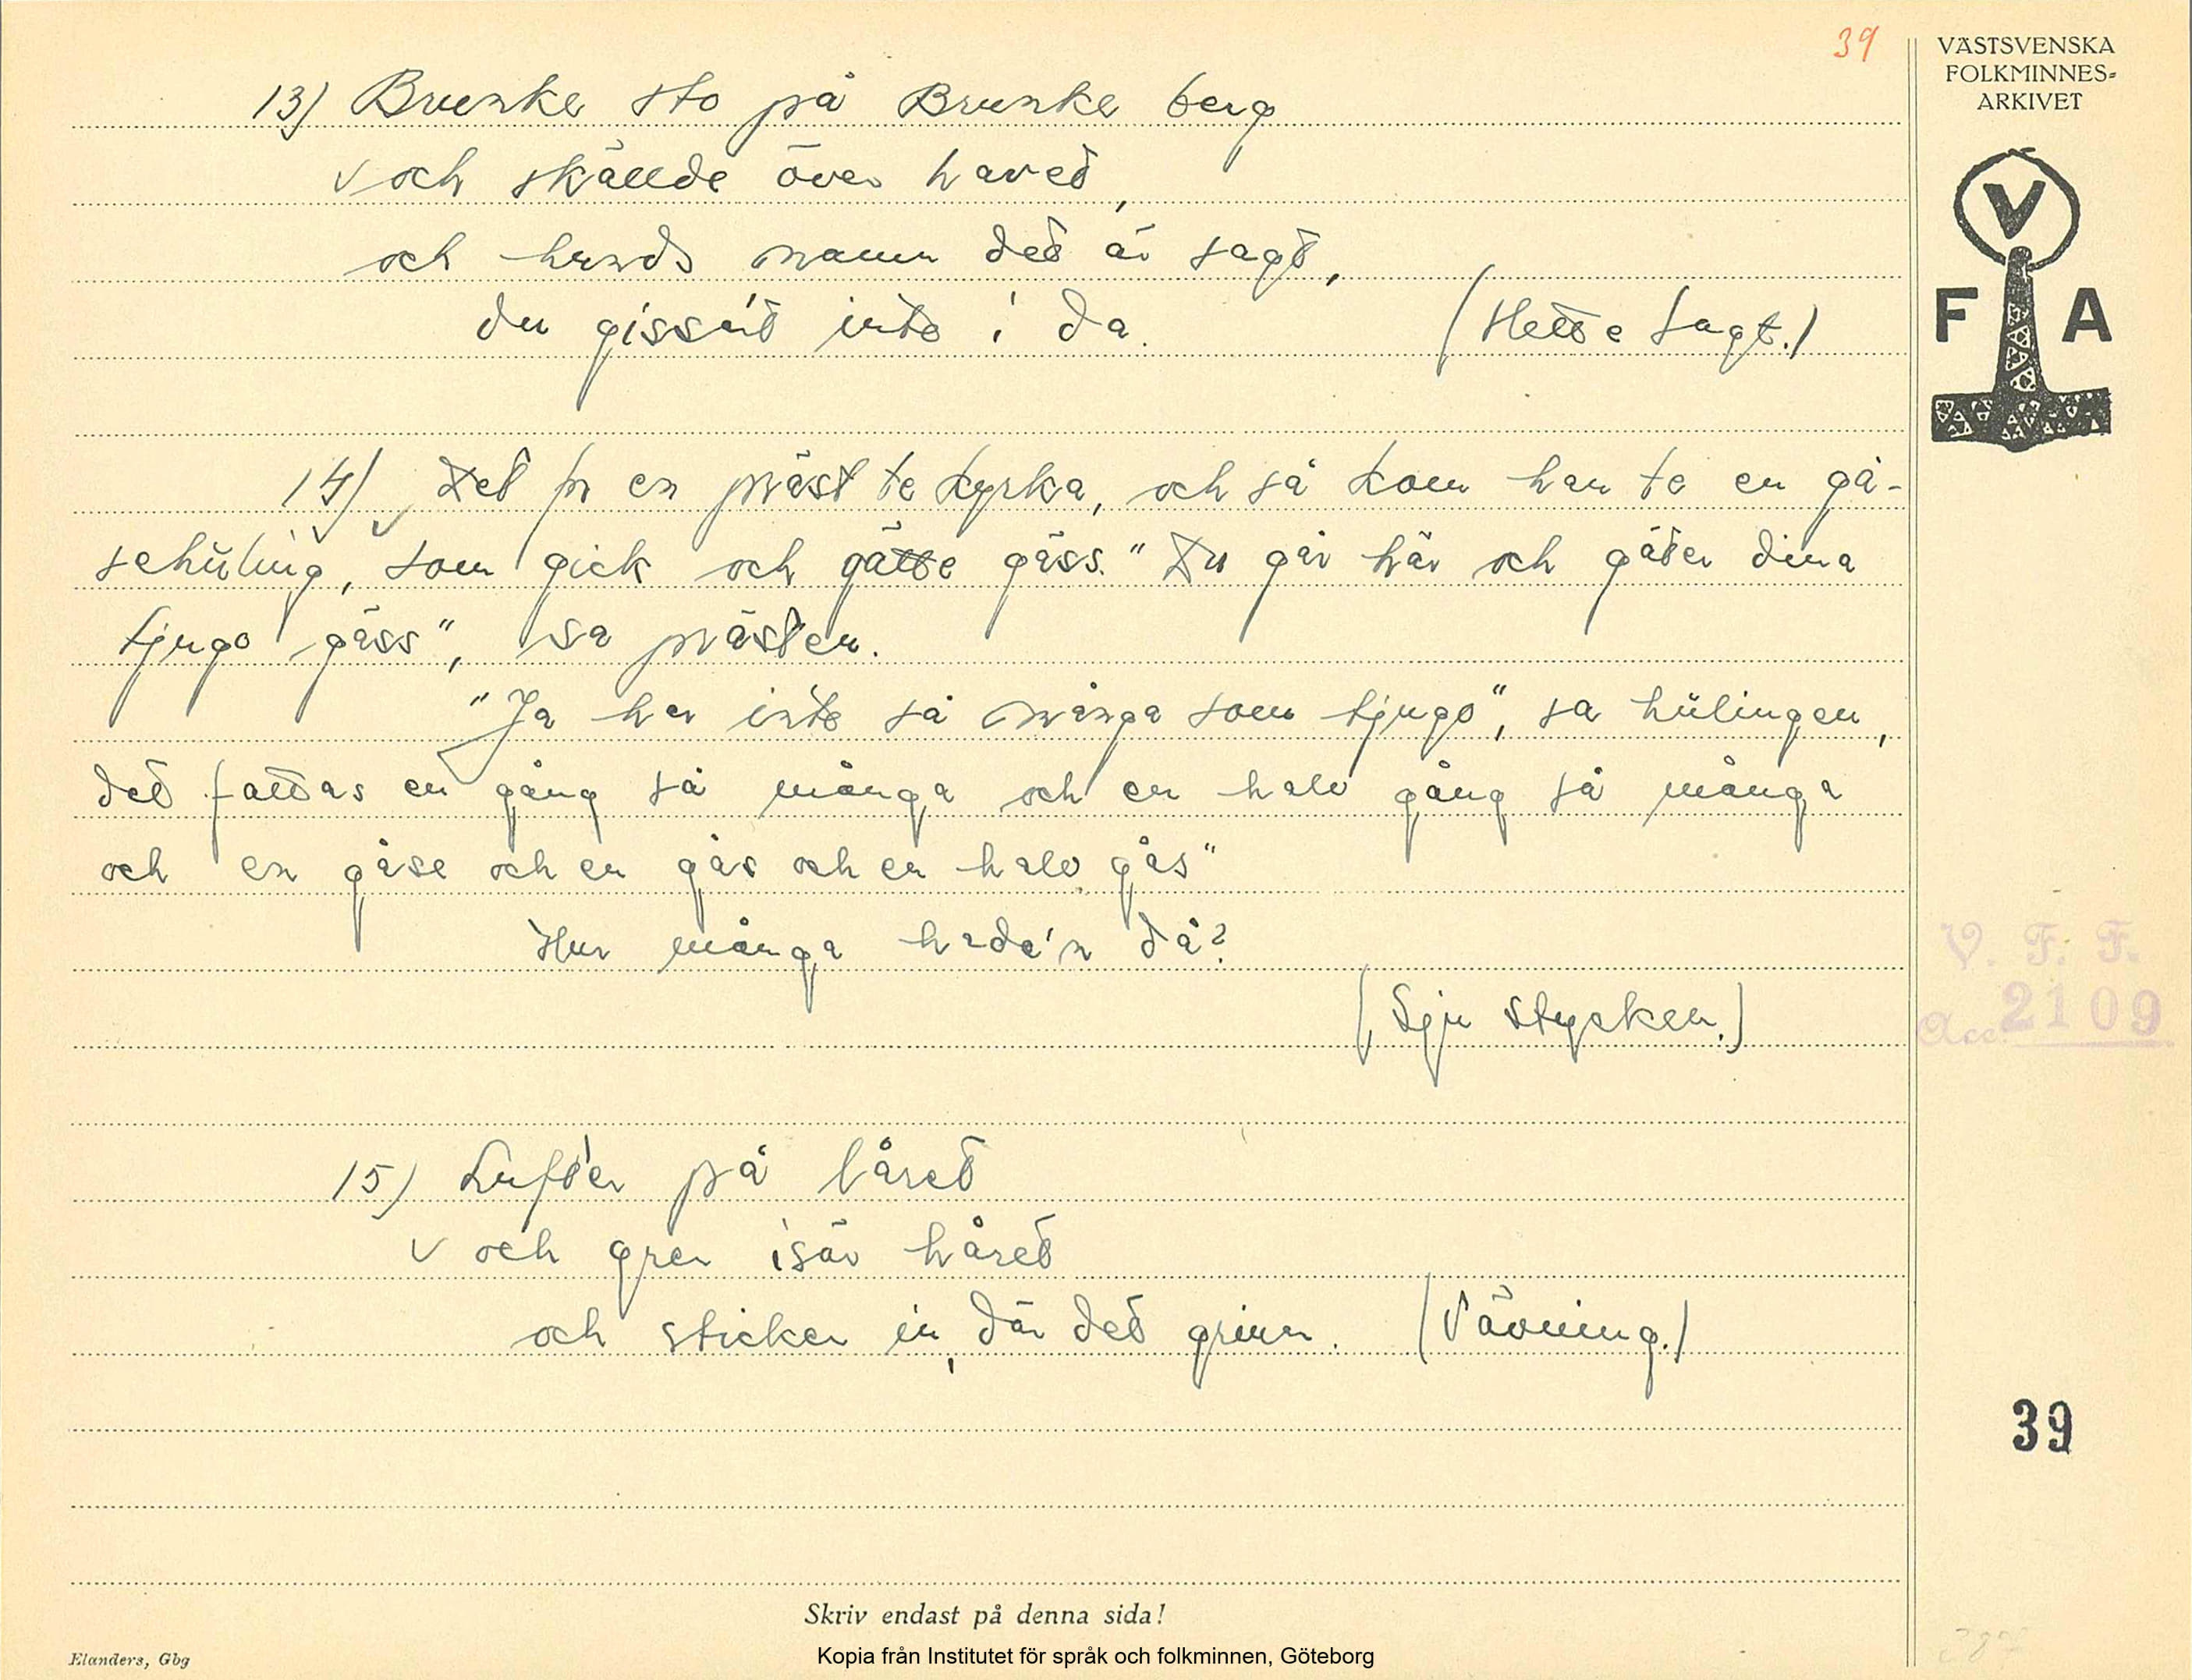 39
VÄSTSVENSKA
FOLKMINNES-
ARKIVET
V
F A
13) Brunke sto på Brunke berg
och skällde över haved,
och hunds namn ded är sagt,
du gissa'd inte i da.
(Hette Sagt.)
14) Ded for en präst te kyrka, och så kom han te en gå-
sehüling, som gick och gätte gäss. "Du går här och gäter dina
tjugo gäss", sa prästen.
"Ja har inte så många som tjugo", sa hülingen,
ded fattas en gång så många och en halv gång så många
och en gåse och en gås och en halv gås"
Hur många hade'n då?
(Sju stycken.)
15) Lufter på låred
och grer isär håred
och sticker in, där ded grinn. (Vävning.)
V. F. F.
Acc. 2109
39
Skriv endast på denna sida!
Elanders, Gbg
Kopia från Institutet för språk och folkminnen, Göteborg